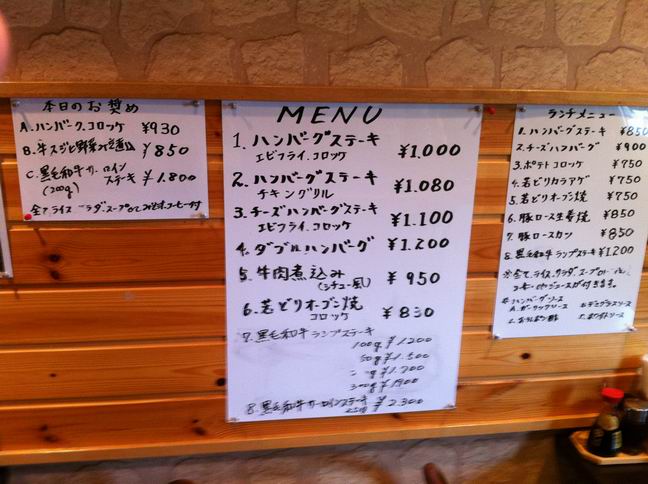 本日のお奨め
A. ハンバーク、コロッケ ¥930
B. 牛スジと野菜 ¥850
C. 黒毛和牛サーロイン
ステーキ ¥1.800
(200g)
全てライス サラダ スープ コーヒー付
MENU
1. ハンバーグステーキ
エビフライ.コロッケ ¥1.000
2. ハンバーグステーキ
チキングリル ¥1.080
3. チーズハンバーグステーキ
エビフライ.コロッケ ¥1.100
4. ダブルハンバーグ ¥1.200
5. 牛肉煮込み
(シチュー風) ¥950
6. 若どりオーブン焼
コロッケ ¥850
7. 黒毛和牛 ランプステーキ
100g ¥1200
¥1.500
¥1.700
300g ¥1900
8. 黒毛和牛サーロインステーキ
¥2.300
ランチメニュー
1. ハンバーグステーキ ¥850
2. チーズハンバーグ ¥900
3. ポテトコロッケ ¥750
4. 若どりカラアゲ ¥750
5. 若どりオーブン焼 ¥750
6. 豚ロース生姜焼 ¥850
7. 豚ロースカツ ¥850
8. 黒毛和牛 ランプステーキ ¥1.200
※全て、ライス、サラダ、スープ
ジュースが付きます。
ハンバーグソース デミグラスソース
ガーリックソース
ホワイトソース